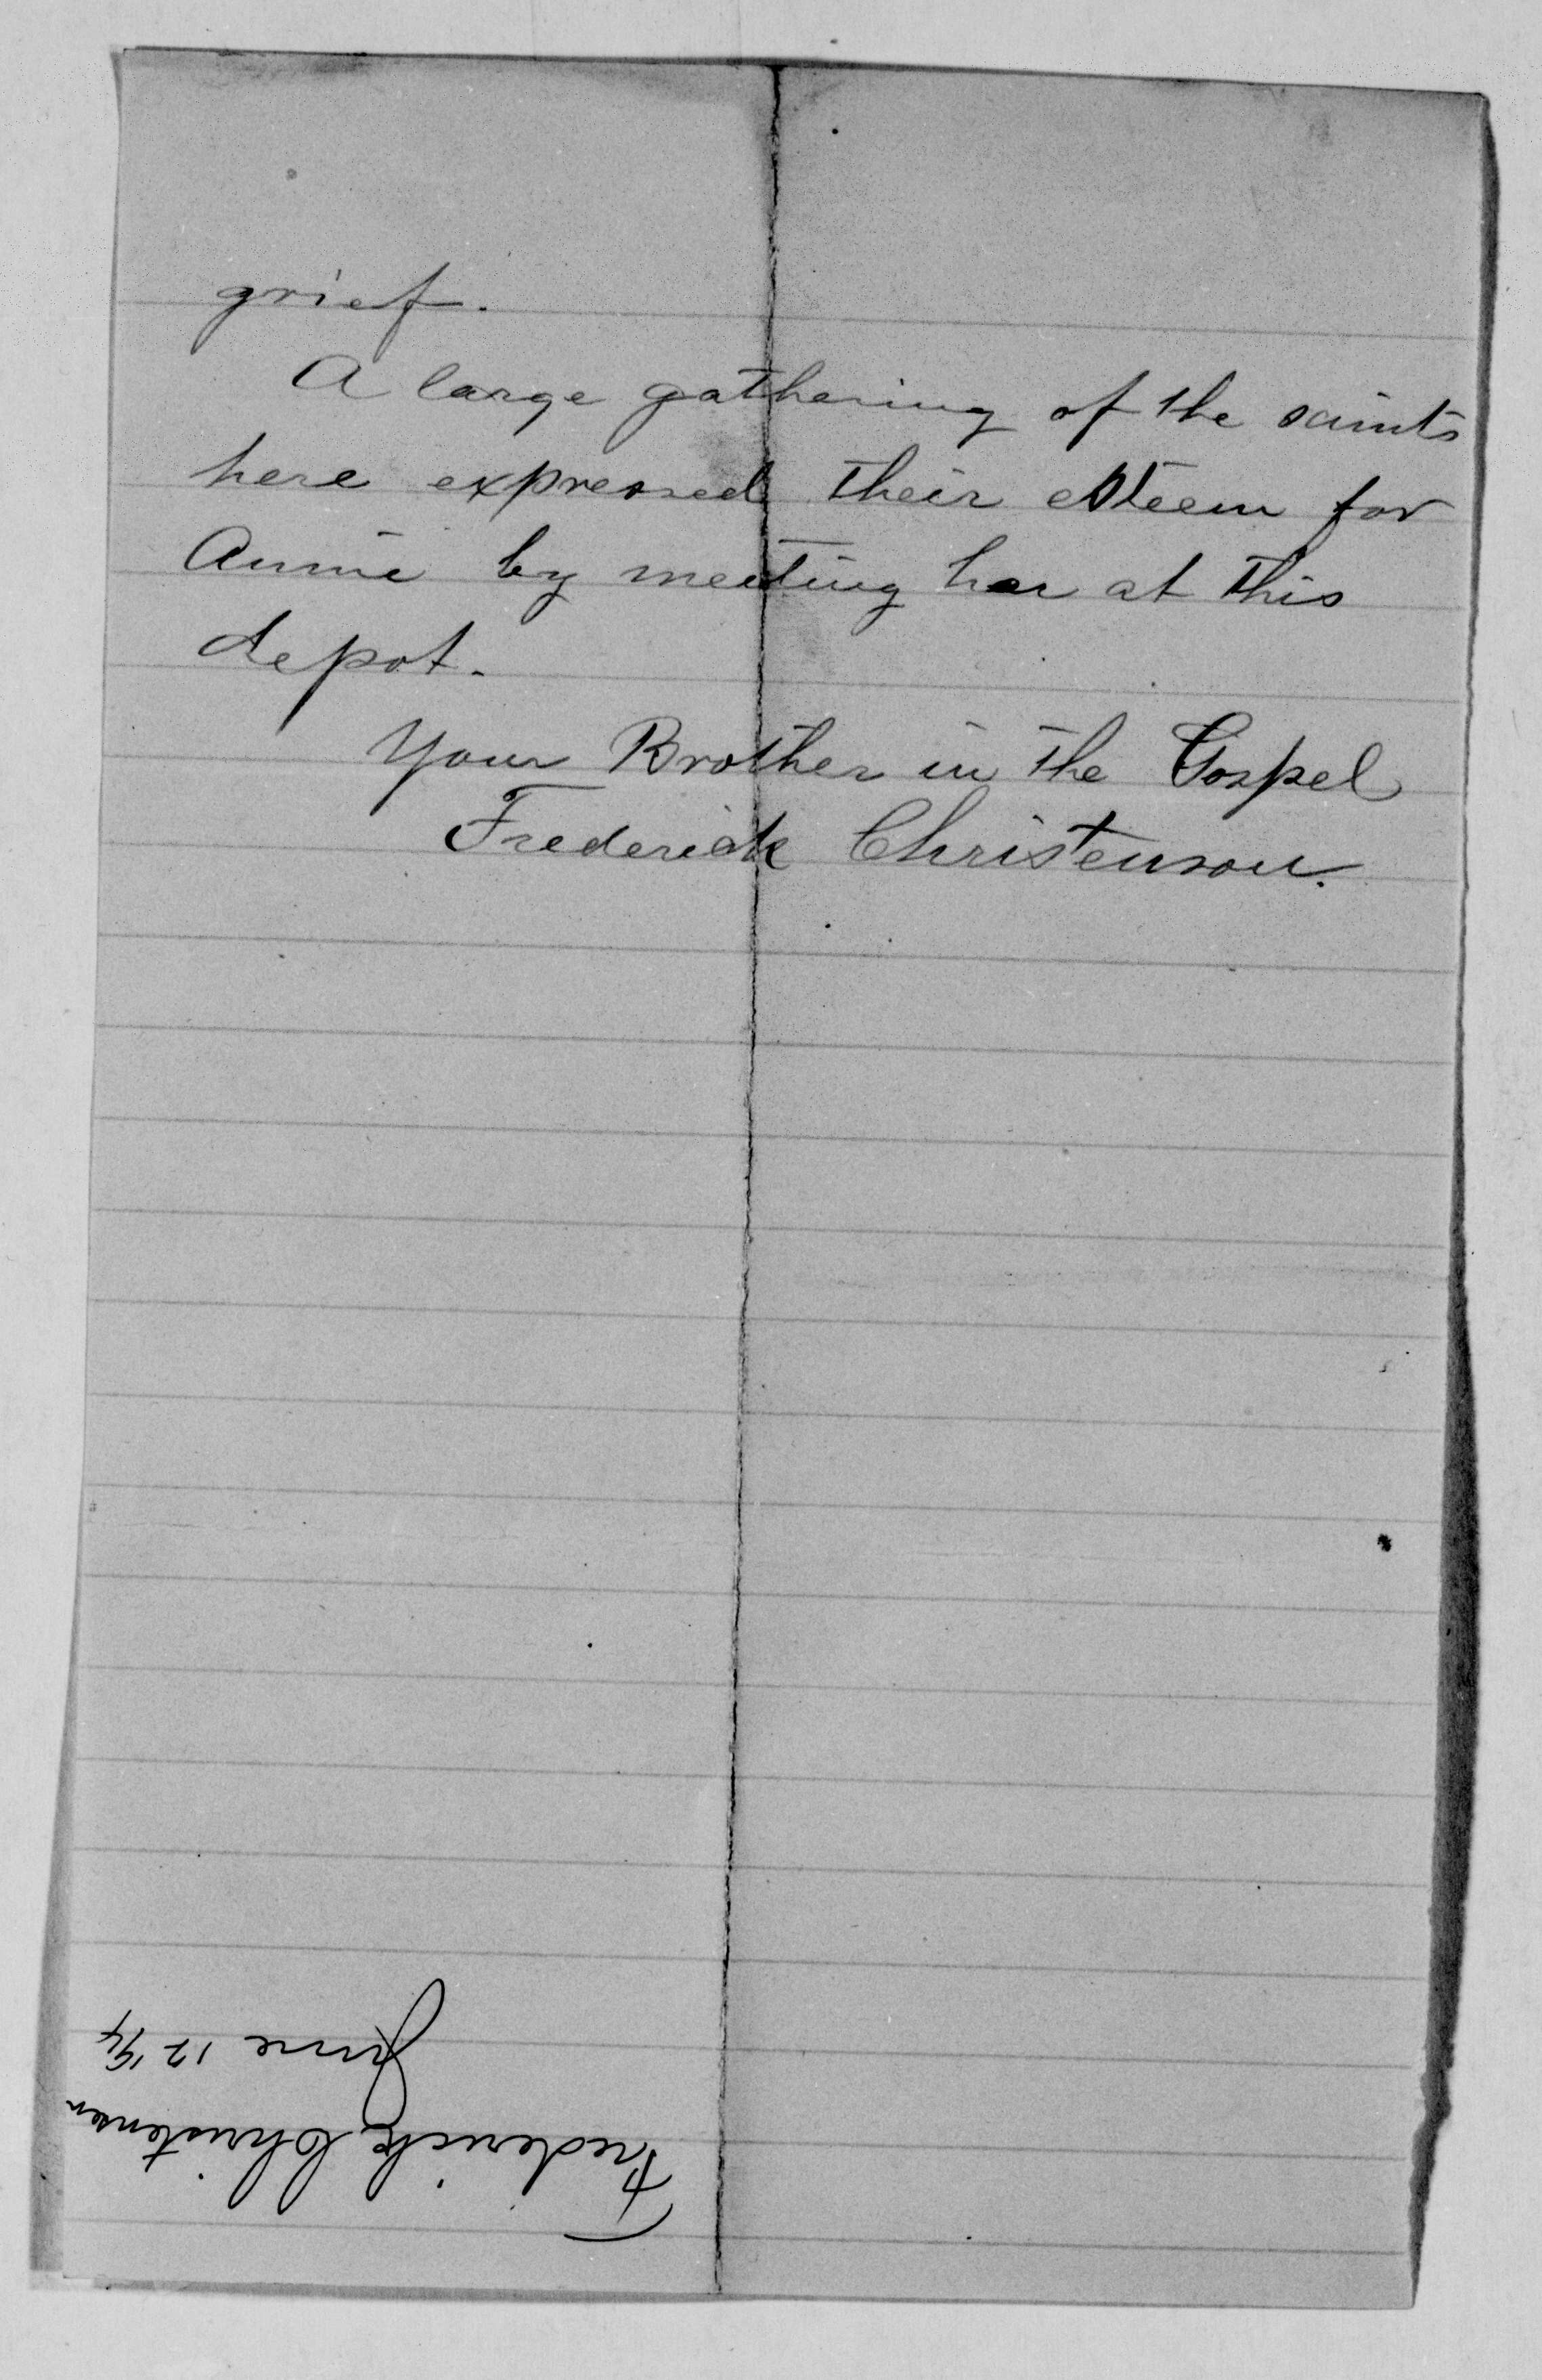 grief.
A large gathering of the saints
here expressed their esteem for
Annie by meeting her at this
depot.
Your Brother in the Gospel
Frederick Christenson.
Frederick Christensen
June 12 '94